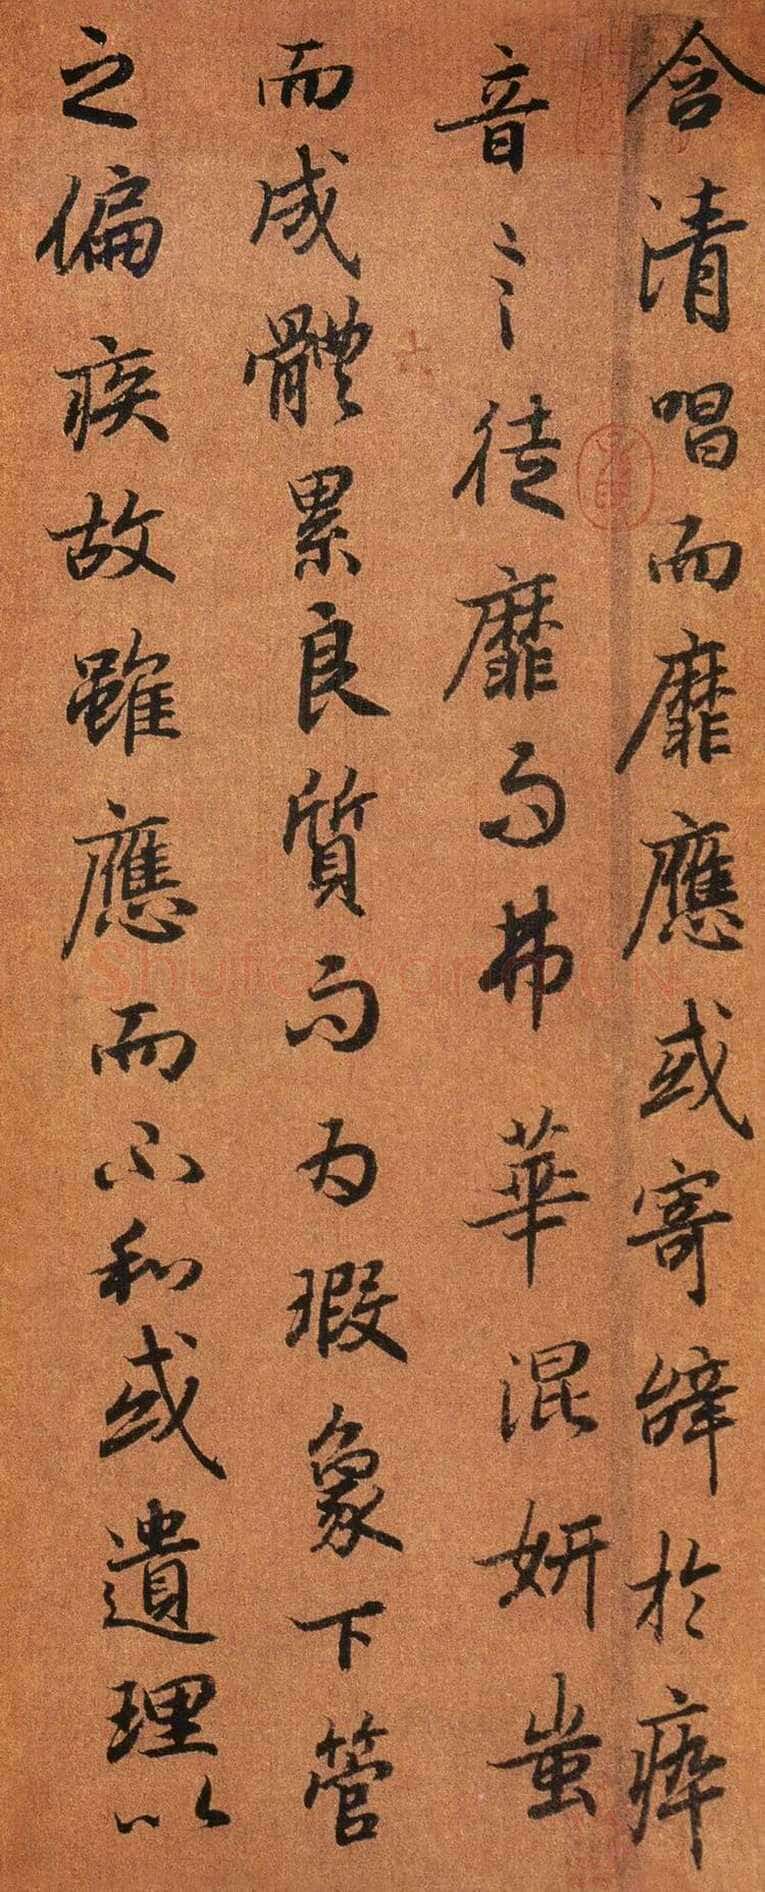 含清唱而靡應或寄辭於瘁
音言徒靡而弗華混妍蚩
而成體累良質而為瑕象下管
之偏疾故雖應而不和或遺理以
Shufawang.CN